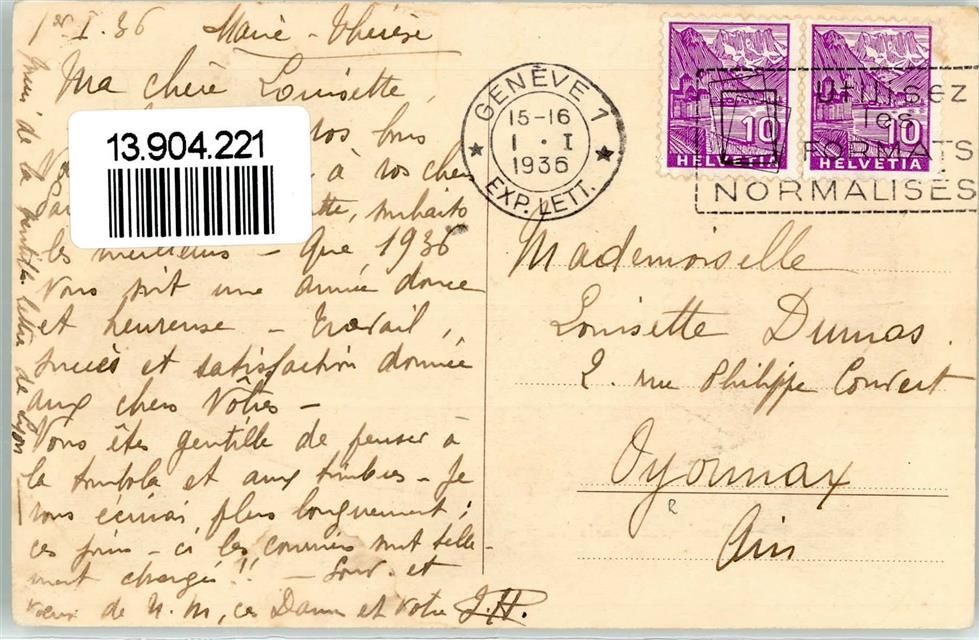 1er I. 36 Marie-Thérèse
Ma chère Louisette,
vos bons
à vos chers
souhaits
les meilleurs - Que 1936
vous soit une année douce
et heureuse - travail,
succès et satisfaction donnée
aux chers Vôtres -
Vous êtes gentille de penser à
la tombola et aux timbres - Je
vous écrirai plus longuement ;
ces jours-ci les courriers sont telle-
ment chargés !! - Souv. et
vœux de N. M, ces Dames et votre J.H.
Merci de la gentille lettre de Lyon
13.904.221
GENÈVE 1
15-16
1 · I
1936
EXP. LETT.
10
HELVETIA
10
HELVETIA
Utilisez
les
FORMATS
NORMALISÉS
Mademoiselle
Louisette Dumas.
2. rue Philippe Convert
Oyonnax
Ain